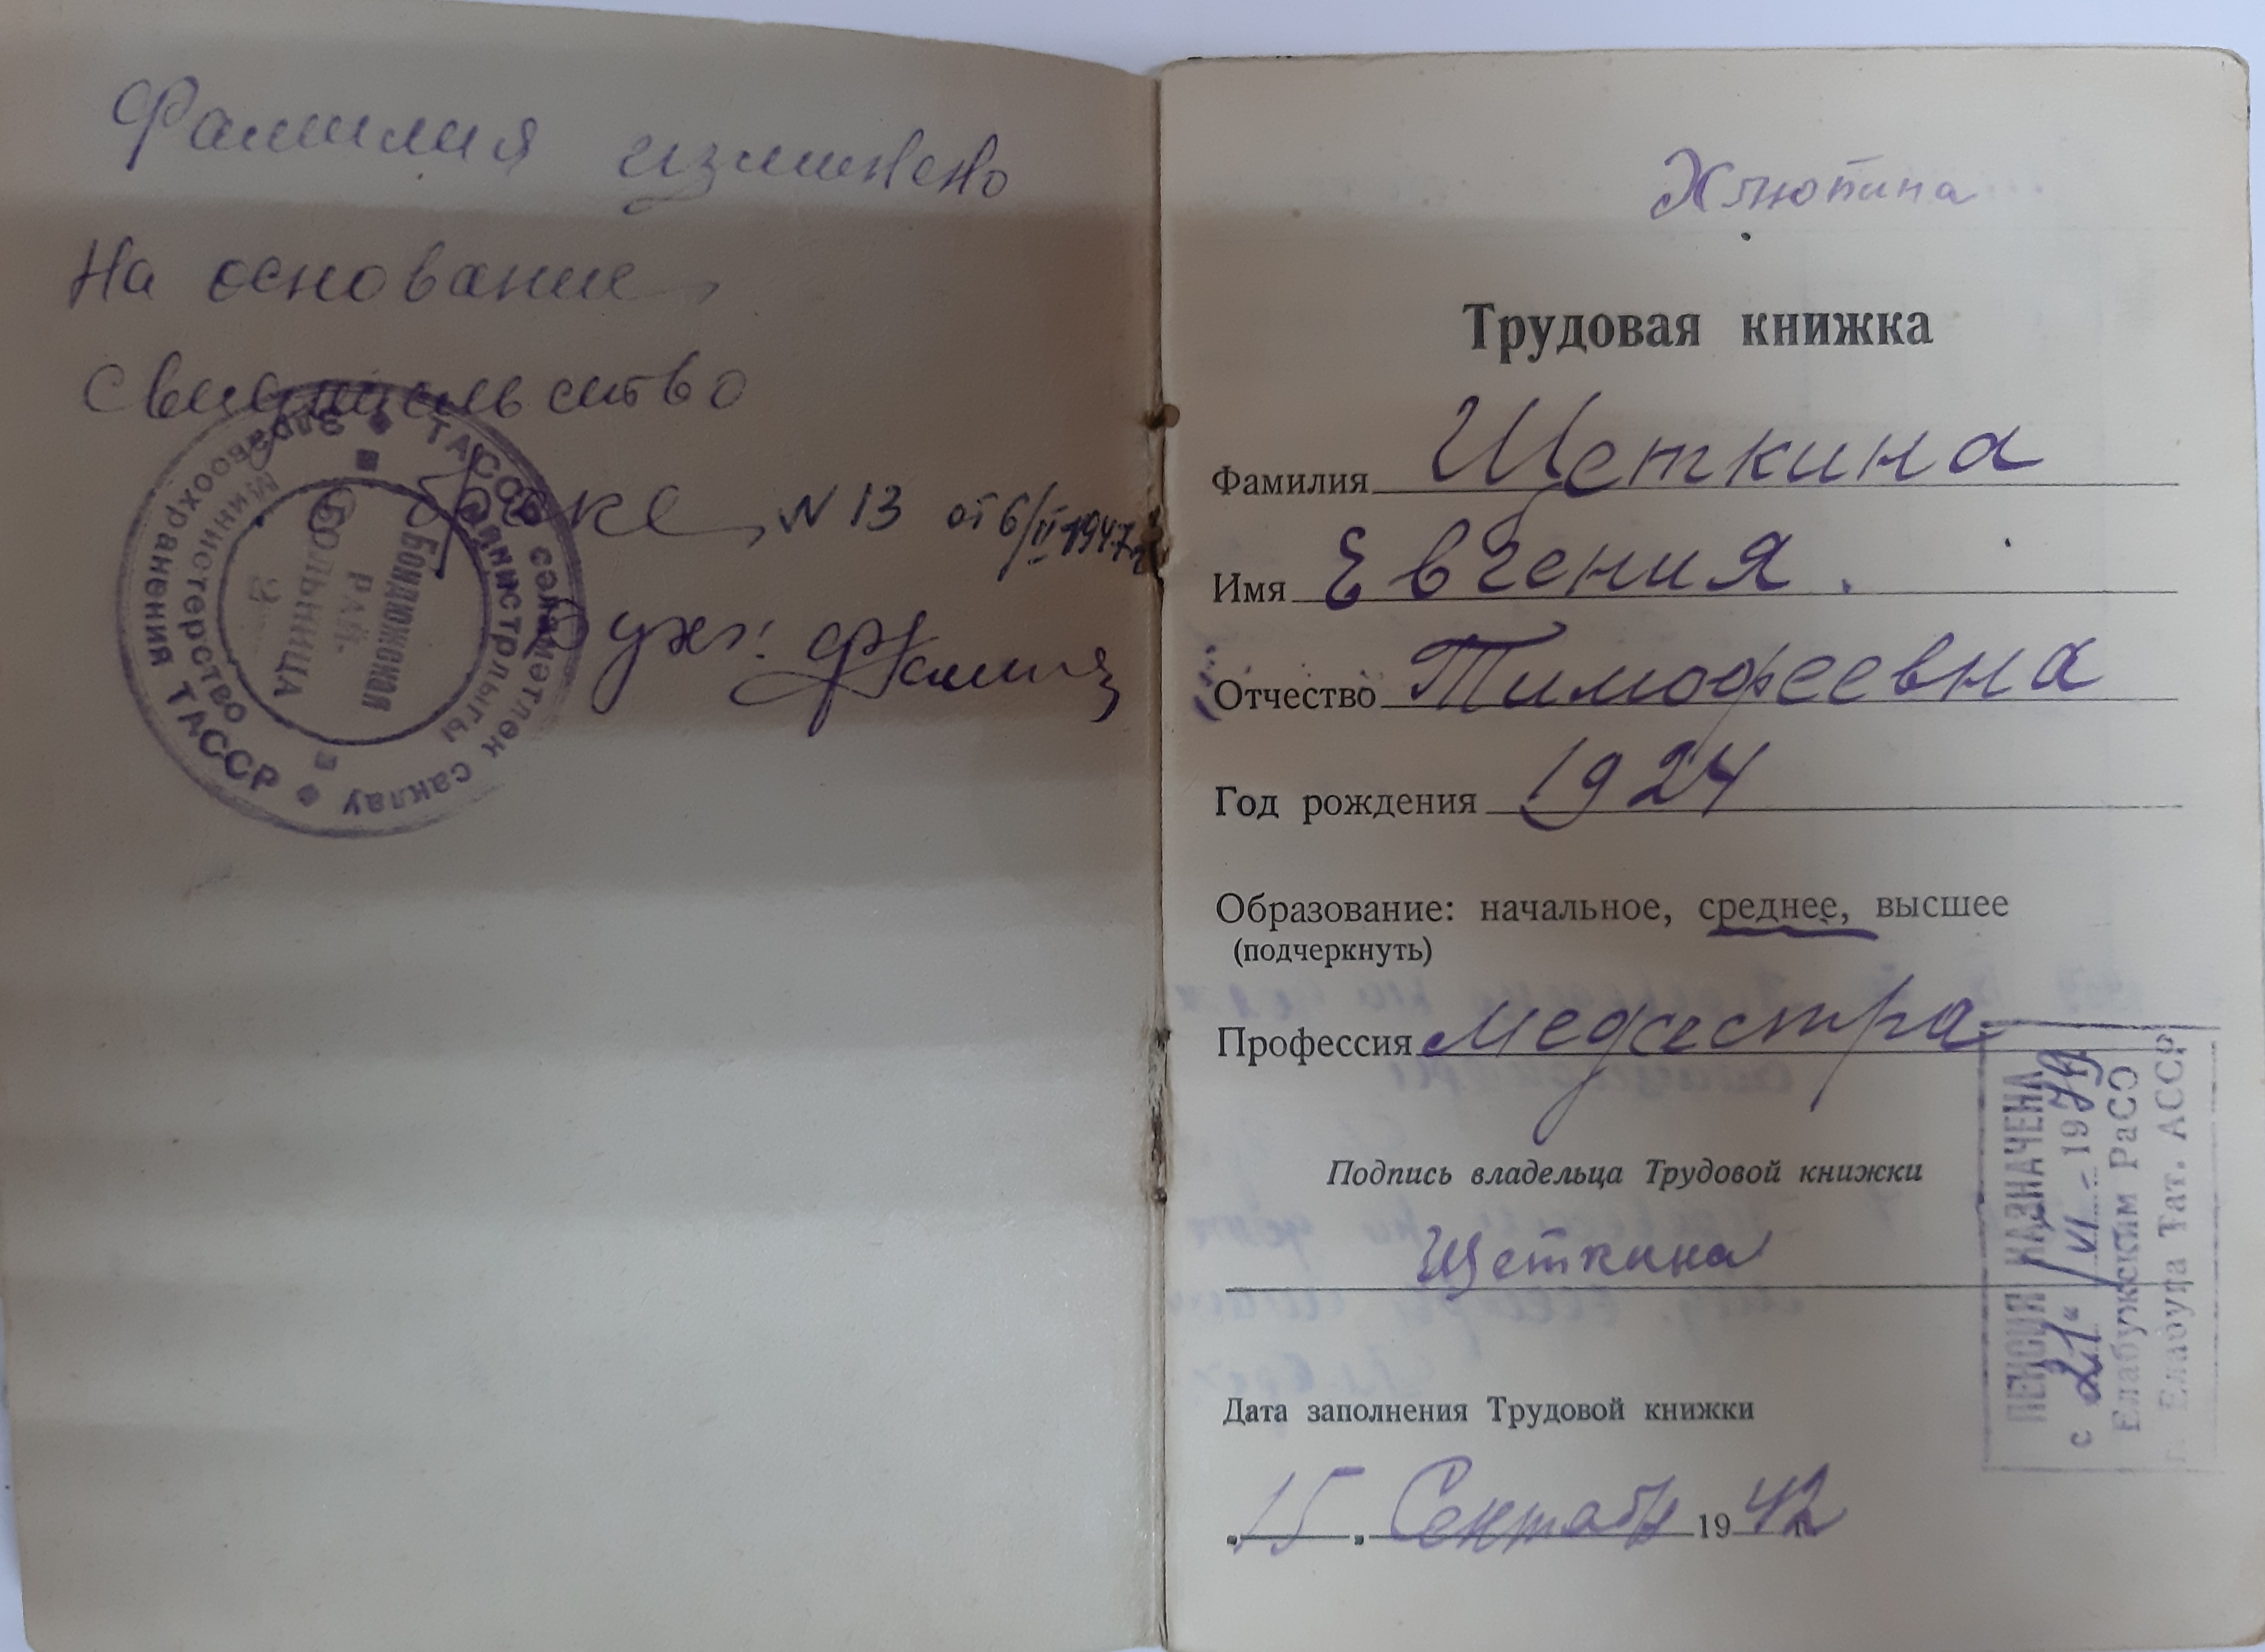 Фамилия изминено
На основание
свидительство
о браке N 13 от 6/II 1947г
Бух:
ТАССР сәламәтлек саклау министрлыгы
Министерство здравоохранения ТАССР
Бондюжская
РАЙ.
БОЛЬНИЦА
Хлюпина
Трудовая книжка
Фамилия Щеткина
Имя Евгения.
Отчество Тимофеевна
Год рождения 1924
Образование: начальное, среднее, высшее
(подчеркнуть)
Профессия медсестра
Подпись владельца Трудовой книжки
Щеткина
Дата заполнения Трудовой книжки
15. Сентябр 1942
ПЕНСИЯ НАЗНАЧЕНА
с "21" VI - 1979
Елабужским РаСО
г. Елабуга Тат. АССР